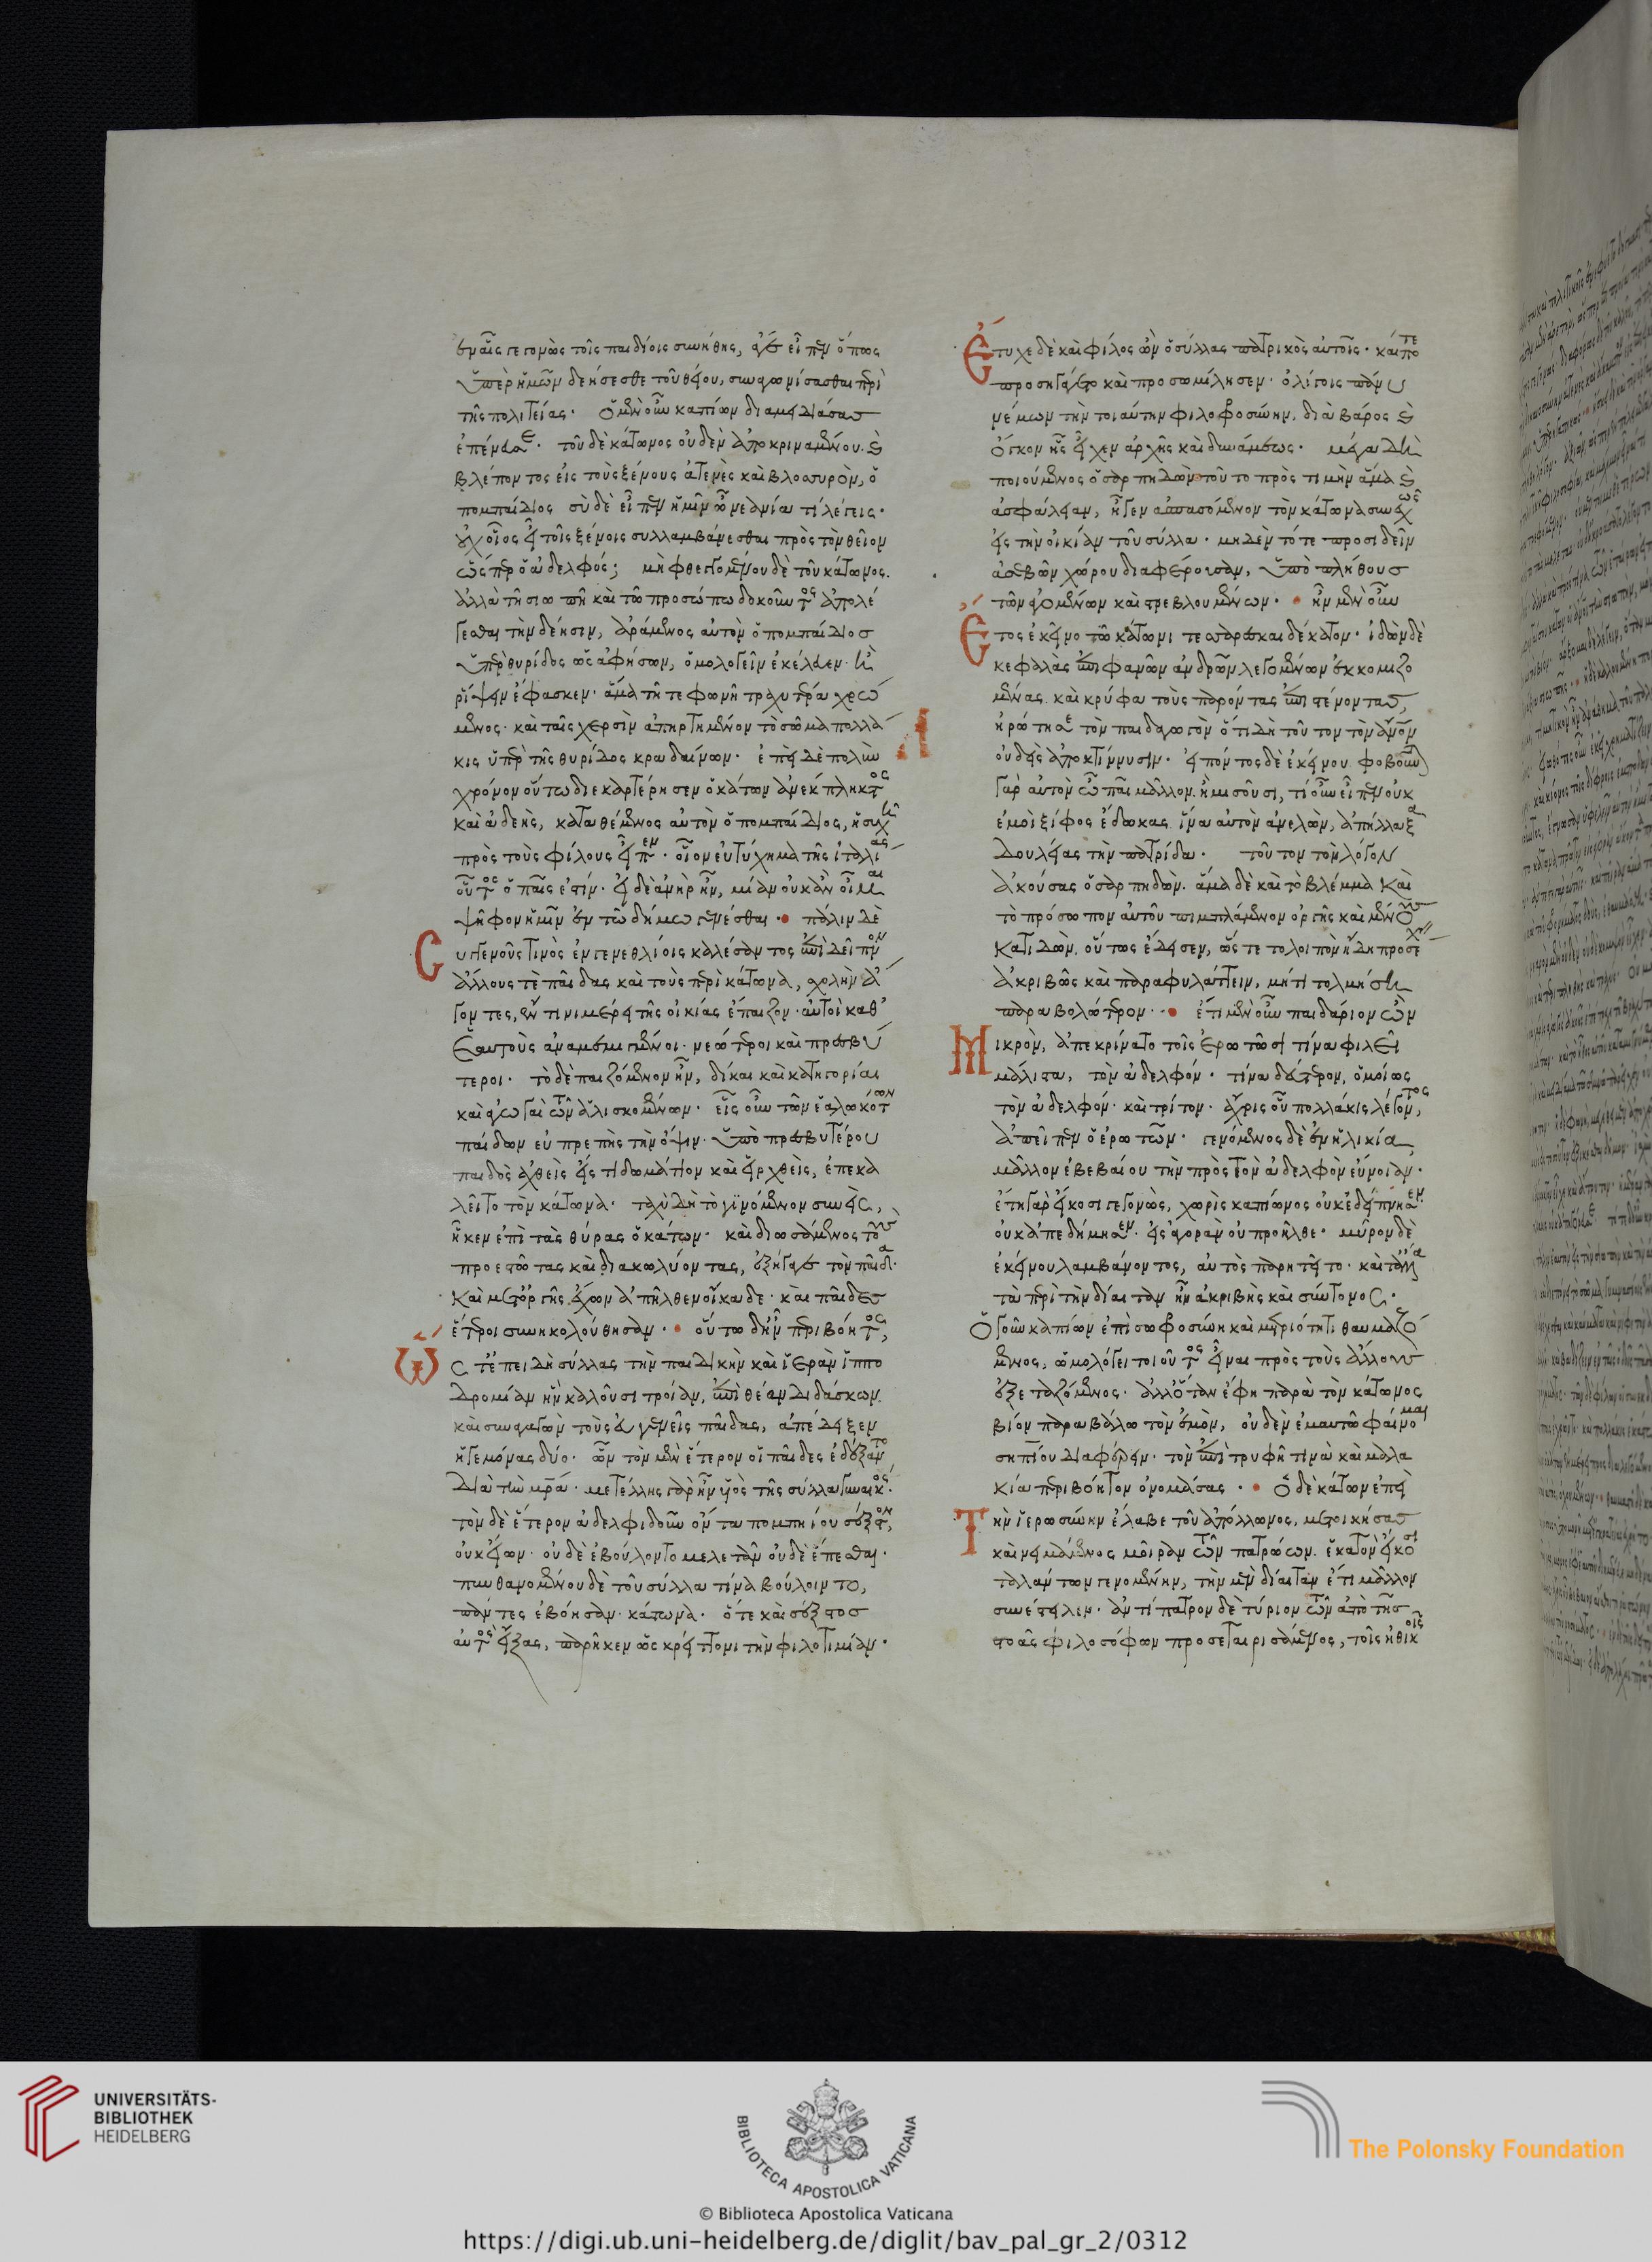 ἐν αἷς γεγονὼς τοῖς παιδίοις συνήθης, ἄγε εἶπεν ὅπως
ὑπὲρ ἡμῶν δεήσεσθε τοῦ θείου, συναγωνίσασθαι περὶ
τῆς πολιτείας. ὁ μὲν οὖν καιπίων διαμειδιάσας
ἐπένευσε. τοῦ δὲ κάτωνος οὐδὲν ἀποκριναμένου. καὶ
βλέποντος εἰς τοὺς ξένους ἀτενὲς καὶ βλοσυρὸν, ὁ
πομπαίδιος σὺ δὲ εἶπεν ἡμῖν ὦ νεανία τί λέγεις.
οὐχ οἷος εἶ τοῖς ξένοις συλλαμβάνεσθαι πρὸς τὸν θεῖον
ὥσπερ ὁ ἀδελφός; μὴ φθεγγομένου δὲ τοῦ κάτωνος.
ἀλλὰ τῆ σιωπῆ καὶ τῶ προσώπω δοκοῦντος ἀπολέ
γεσθαι τὴν δέησιν, ἀράμενος αὐτὸν ὁ πομπαίδιος
ὑπὲρ θυρίδος ὡς ἀφήσων, ὁμολογεῖν ἐκέλευεν. ἢ
ῥίψειν ἔφασκεν. ἅμα τῆ τε φωνῆ τραχυτέρα χρώ
μενος. καὶ ταῖς χερσὶν ἀπηρτημένον τὸ σῶμα πολλά
κις ὑπὲρ τῆς θυρίδος κραδαίνων. ἐπεὶ δὲ πολὺν
χρόνον οὕτω διεκαρτέρησεν ὁ κάτων ἀνέκπληκτος
καὶ ἀδεὴς, καταθέμενος αὐτὸν ὁ πομπαίδιος, ἡσυχῆ
πρὸς τοὺς φίλους εἶπεν. οἷον εὐτύχημα τῆς ἰταλίας
οὗτος ὁ παῖς ἐστίν. εἰ δὲ ἀνὴρ ἦν, μίαν οὐκ ἂν οἶμαι
ψῆφον ἡμῖν ἐν τῶ δήμω γενέσθαι. πάλιν δὲ
Συγγενοῦς τινὸς ἐν γενεθλίοις καλέσαντος ἐπὶ δεῖπνον
ἄλλους τὲ παῖδας καὶ τοὺς περὶ κάτωνα, σχολὴν ἄ
γοντες, ἔν τινι μέρει τῆς οἰκίας ἔπαιζον. αὐτοὶ καθ'
ἑαυτοὺς ἀναμεμιγμένοι. νεώτεροι καὶ πρεσβύ
τεροι. τὸ δὲ παιζόμενον ἦν, δίκαι καὶ κατηγορίαι
καὶ ἀγωγαὶ τῶν ἁλισκομένων. εἷς οὖν τῶν ἑαλωκότων
παίδων εὐπρεπὴς τὴν ὄψιν. ὑπὸ πρεσβυτέρου
παιδὸς ἀχθεὶς εἴς τι δωμάτιον καὶ εἰρχθεὶς, ἐπεκα
λεῖτο τὸν κάτωνα. ταχὺ δὴ τὸ γινόμενον συνεὶς,
ἧκεν ἐπὶ τὰς θύρας ὁ κάτων. καὶ διωσάμενος τοὺς
προεστῶτας καὶ διακωλύοντας, ἐξήγαγε τὸν παῖδα.
καὶ μετ' ὀργῆς ἔχων ἀπῆλθεν οἴκαδε. καὶ παῖδες
ἕτεροι συνηκολούθησαν. οὕτω δ' ἦν περιβόητος,
Ὥς τ' ἐπειδὴ σύλλας τὴν παιδικὴν καὶ ἱερὰν ἱππο
δρομίαν ἣν καλοῦσι τροίαν, ἐπὶ θέαν διδάσκων.
καὶ συναγαγὼν τοὺς εὐγενεῖς παῖδας, ἀπέδειξεν
ἡγεμόνας δύο. ὧν τὸν μὲν ἕτερον οἱ παῖδες ἐδέξαντο
διὰ τὴν μητέρα. μετέλλης γὰρ ἦν υἱὸς τῆς σύλλα γυναικός.
τὸν δὲ ἕτερον ἀδελφιδοῦν ὄντα πομπηίου σέξτον,
οὐκ εἴων. οὐδὲ ἐβούλοντο μελετᾶν οὐδὲ ἕπεσθαι.
πυνθανομένου δὲ τοῦ σύλλα τίνα βούλοιντο,
πάντες ἐβόησαν κάτωνα. ὅ τε καὶ σέξτος
αὐτὸς εἴξας, παρῆκεν ὡς κρείττονι τὴν φιλοτιμίαν.
Ἔτυχε δὲ καὶ φίλος ὢν ὁ σύλλας πατρικὸς αὐτοῖς. καί ποτε
προσηγάγετο καὶ προσωμίλησεν. ὀλίγοις πάνυ
νέμων τὴν τοιαύτην φιλοφροσύνην, διὰ βάρος καὶ
ὄγκον ἧς εἶχεν ἀρχῆς καὶ δυνάμεως. μέγα δὴ
ποιούμενος ὁ σαρπηδὼν τοῦτο πρὸς τιμὴν ἅμα καὶ
ἀσφάλειαν, ἦγεν ἀσπασόμενον τὸν κάτωνα συνεχῶς
εἰς τὴν οἰκίαν τοῦ σύλλα. μηδὲν τότε προσιδεῖν
ἀσεβῶν χώρου διαφέρουσαν, ὑπὸ πλήθους
τῶν ἀγομένων καὶ στρεβλουμένων. ἦν μὲν οὖν
Ἔτος ἐκεῖνο τῶ κάτωνι τεσσαρεσκαιδέκατον. ἰδὼν δὲ
κεφαλὰς ἐπιφανῶν ἀνδρῶν λεγομένων ἐκκομιζο
μένας. καὶ κρύφα τοὺς παρόντας ἐπιστένοντας,
ἠρώτησε τὸν παιδαγωγὸν ὅτι δὴ τοῦτον τὸν ἄνθρωπον
οὐδεὶς ἀποκτίννυσιν. εἰπόντος δὲ ἐκείνου. φοβοῦνται
γὰρ αὐτὸν ὦ παῖ μᾶλλον, ἢ μισοῦσι, τί οὖν εἶπεν οὐκ
ἐμοὶ ξίφος ἔδωκας ἵνα αὐτὸν ἀνελὼν, ἀπήλλαξα
δουλείας τὴν πατρίδα. τοῦτον τὸν λόγον
ἀκούσας ὁ σαρπηδὼν. ἅμα δὲ καὶ τὸ βλέμμα καὶ
τὸ πρόσωπον αὐτοῦ πιμπλάμενον ὀργῆς καὶ μένους
κατιδὼν, οὕτως ἔδεισεν, ὥς τε τολοιπὸν ἤδη προσέχειν
ἀκριβῶς καὶ παραφυλάττειν, μή τι τολμήση
παραβολώτερον. ἔτι μὲν οὖν παιδάριον ὢν
Μικρὸν, ἀπεκρίνατο τοῖς ἐρωτῶσι τίνα φιλεῖ
μάλιστα, τὸν ἀδελφόν. τίνα δεύτερον, ὁμοίως
τὸν ἀδελφόν. καὶ τρίτον. ἄχρις οὗ πολλάκις λέγοντος,
ἀπεῖπεν ὁ ἐρωτῶν. γενόμενος δὲ ἐν ἡλικία
μᾶλλον ἐβεβαίου τὴν πρὸς τὸν ἀδελφὸν εὔνοιαν.
ἔτη γὰρ εἴκοσι γεγονὼς, χωρὶς καιπίωνος οὐκ ἐδείπνησεν
οὐκ ἀπεδήμησεν. εἰς ἀγορὰν οὐ προῆλθε. μῦρον δὲ
ἐκείνου λαμβάνοντος, αὐτὸς παρητεῖτο. καὶ τἆλλα
τὰ περὶ τὴν δίαιταν ἦν ἀκριβὴς καὶ σύντονος.
Ὁ γοῦν καιπίων ἐπὶ σωφροσύνη καὶ μετριότητι θαυμαζό
μενος, ὡμολόγει τοιοῦτος εἶναι πρὸς τοὺς ἄλλους
ἐξεταζόμενος. ἀλλ' ὅταν ἔφη παρὰ τὸν κάτωνος
βίον παραβάλω τὸν ἐμὸν, οὐδὲν ἐμαυτῶ φαίνομαι
σηπίου διαφέρειν. τὸν ἐπὶ τρυφῆ τινὰ καὶ μαλα
κία περιβόητον ὀνομάσας. ὁ δὲ κάτων ἐπεὶ
Τὴν ἱερωσύνην ἔλαβε τοῦ ἀπόλλωνος, μετοικήσας
καὶ νειμάμενος μοῖραν τῶν πατρώων. ἑκατὸν εἴκοσι
ταλάντων γενομένην, τὴν μὲν δίαιταν ἔτι μᾶλλον
συνέστελλεν. ἀντίπατρον δὲ τύριον τῶν ἀπὸ τῆς
στοᾶς φιλοσόφων προσεταιρισάμενος, τοῖς ἠθικοῖς
UNIVERSITÄTS-
BIBLIOTHEK
HEIDELBERG
BIBLIOTECA APOSTOLICA VATICANA
The Polonsky Foundation
© Biblioteca Apostolica Vaticana
https://digi.ub.uni-heidelberg.de/diglit/bav_pal_gr_2/0312